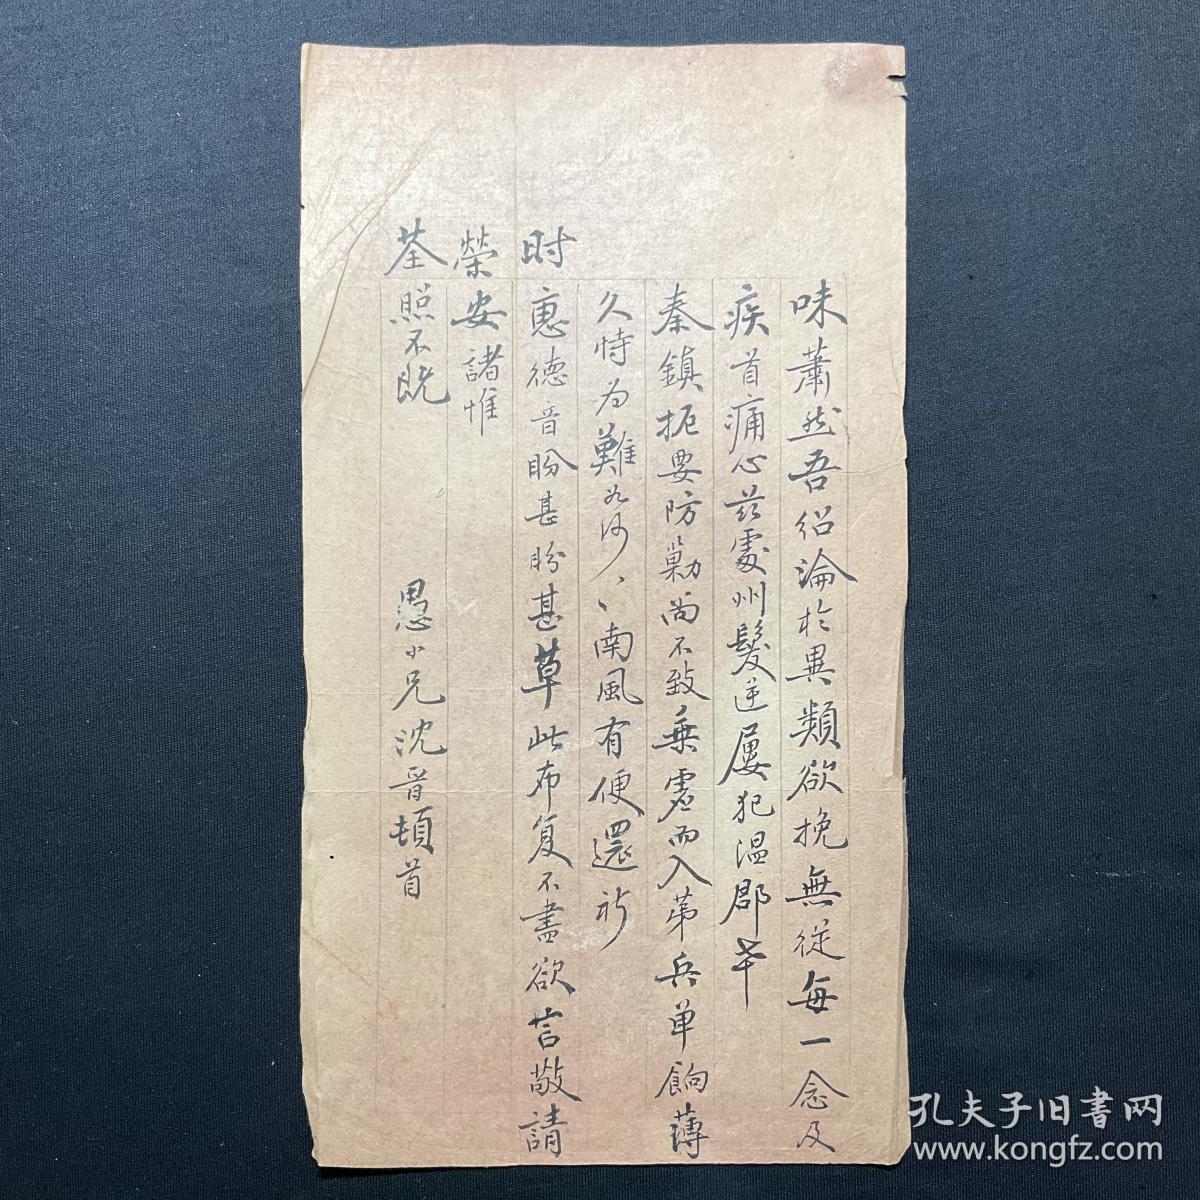 味蕭然吾紹淪於異類欲挽無從每一念及
疾首痛心茲處州髮逆屢犯温郡幸
秦鎮扼要防勦尚不致乗虛而入苐兵单餉薄
久恃为難如何、、南風有便還祈
时惠德音盼甚盼甚草此布复不盡欲言敬請
榮安諸惟
荃照不既
愚小兄沈晋頓首
孔夫子旧書网
www.kongfz.com